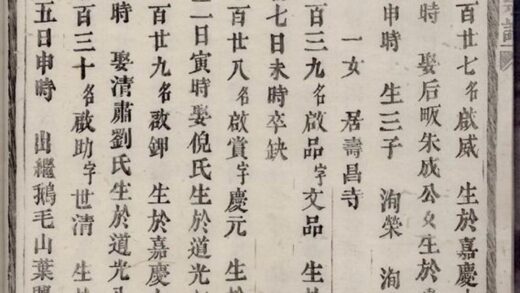 百廿七名啟威 生於嘉慶
時 娶后畈朱成公女生於
申時 生三子 洵榮 洵
一女 居壽昌寺
百三九名啟品字文品 生於
七日未時卒缺
百廿八名啟賞字慶元 生於
二日寅時娶倪氏生於道光
百廿九名啟鉀 生於嘉慶
時 娶清肅劉氏生於道光
百三十名啟助字世清 生於
五日申時 出繼鵝毛山葉